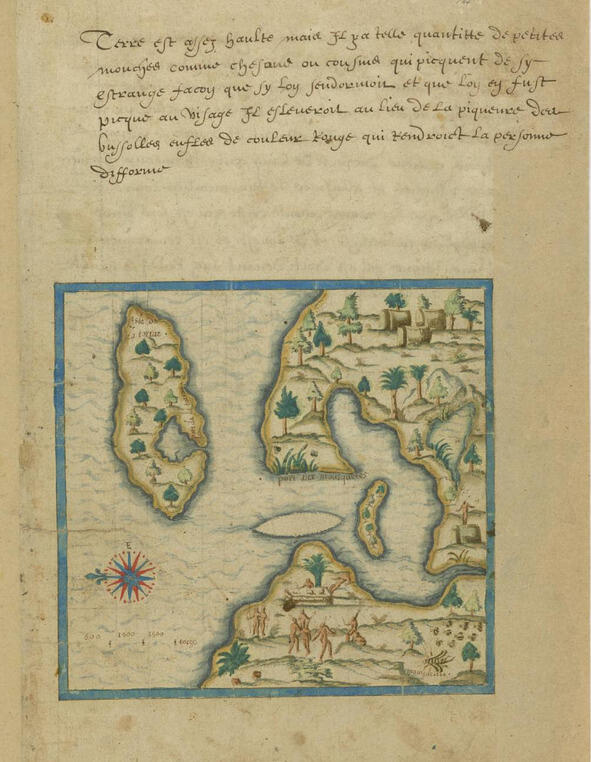 Terre est assez haulte mais Il y a telle quantitte de petites
mouches comme chesans ou cousins qui picquent de sy
estrange facon que sy lon sendormoit et que lon en fust
picque au visage Il esleveroit au lieu de la piqueure des
bussolles enfles de couleur Rouge qui Rendroict la personne
difforme
isle de
la tortue
port des mousquites
E
600 1000 1500 toises